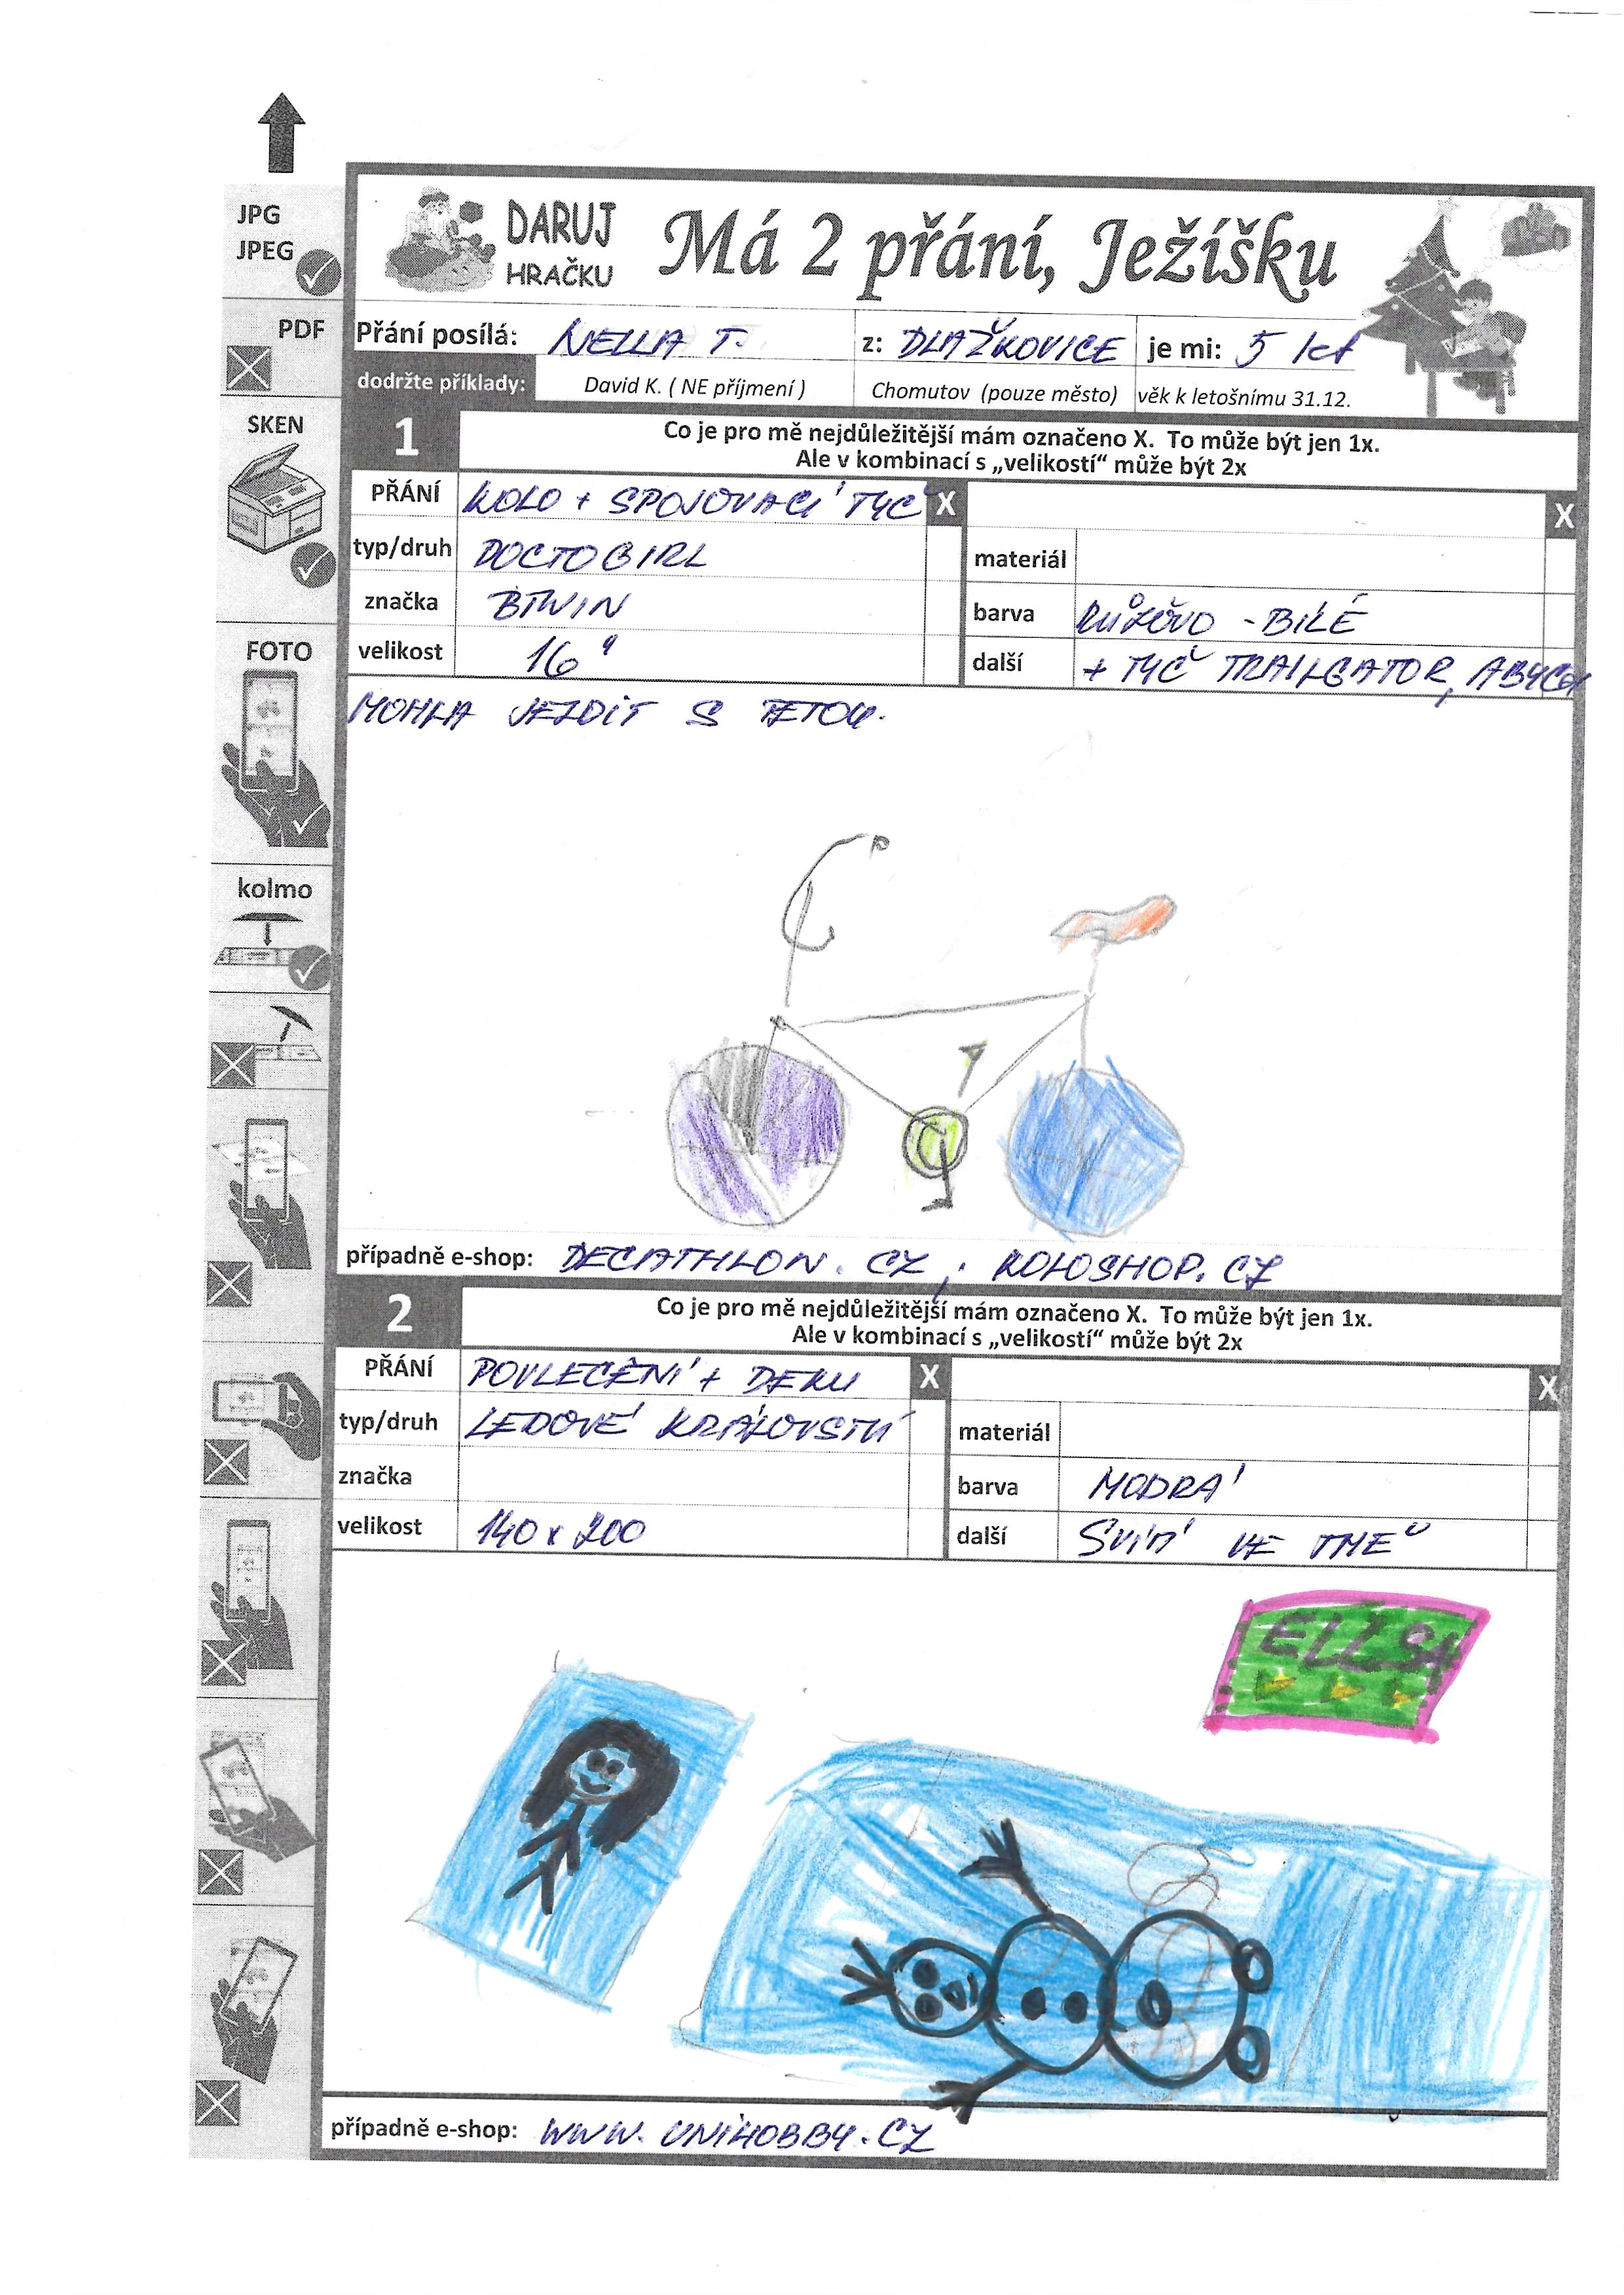 JPG
JPEG
PDF
SKEN
FOTO
kolmo
DARUJ
HRAČKU
Má 2 přání, Ježíšku
Přání posílá: NELLA T. z: DLAŽKOVICE je mi: 5 let
dodržte příklady: David K. ( NE příjmení ) Chomutov (pouze město) věk k letošnímu 31.12.
1 Co je pro mě nejdůležitější mám označeno X. To může být jen 1x.
Ale v kombinací s „velikostí“ může být 2x
PŘÁNÍ KOLO + SPOJOVACÍ TYČ X X
typ/druh DOCTOGIRL materiál
značka BTWIN barva RŮŽOVO - BÍLÉ
velikost 16" další + TYČ TRAILGATOR, ABYCH
MOHLA JEZDIT S TETOU.
případně e-shop: DECATHLON.CZ, KOLOSHOP.CZ
2 Co je pro mě nejdůležitější mám označeno X. To může být jen 1x.
Ale v kombinací s „velikostí“ může být 2x
PŘÁNÍ POVLEČENÍ + DEKU X X
typ/druh LEDOVÉ KRÁLOVSTVÍ materiál
značka barva MODRÁ
velikost 140 x 200 další SVÍTÍ VE TMĚ
ELZSA
případně e-shop: WWW.UNIHOBBY.CZ